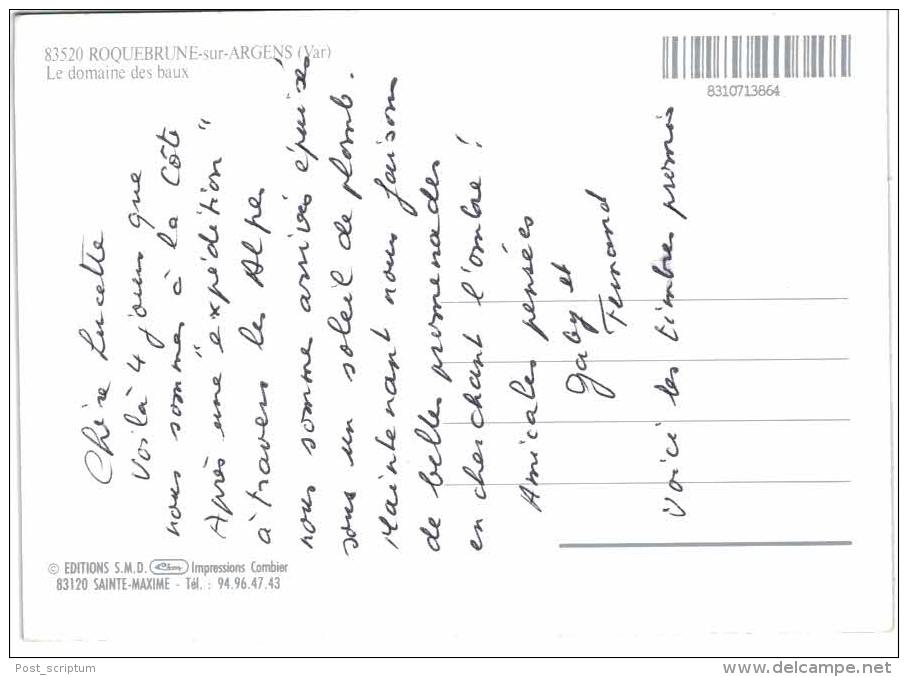 83520 ROQUEBRUNE-sur-ARGENS (Var)
Le domaine des baux
8310713864
Chère Lucette
Voilà 4 jours que
nous sommes à la Côte
Après une "expédition"
à travers les Alpes
nous somme arrivés épuisés
sous un soleil de plomb.
Maintenant nous faisons
de belles promenades
en cherchant l'ombre !
Amicales pensées
Gaby et
Fernand
Voici les timbres promis
© EDITIONS S.M.D. Cim Impressions Combier
83120 SAINTE-MAXIME - Tél. : 94.96.47.43
Post_scriptum
www.delcampe.net